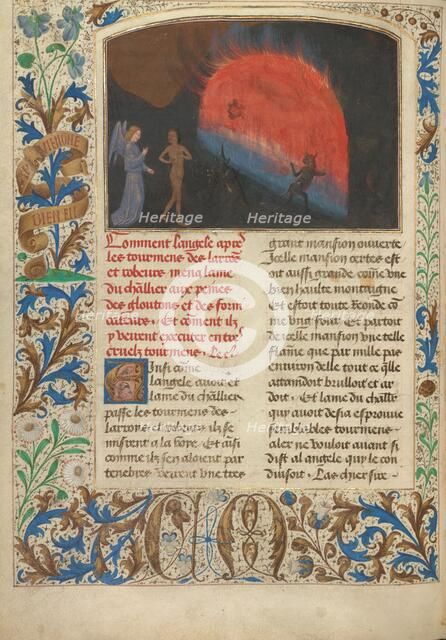 Comment langele apres
les tourmens des larrons
et robeurs mena lame
du chllier aux peines
des gloutons et des forni
cateurs. Et coment ilz
y veirent executer en tres
cruelz tourmens.
Ainsi come
langele auoit et
lame du chllier
passe les tourmens des
larrons et robeurs. ilz se
misrent a la voye. Et ainsi
comme ilz sen aloient par
tenebres veirent une tres
grant mansion ouuerte
Icelle mansion certes est
oit aussi grande come vne
bien haulte montaigne
Et estoit toute Reonde co
me vng four. Et partoit
de celle mansion vne telle
flame que par mille pas
enuiron delle tout ce quelle
attaindoit brulloit et ar
doit. Et lame du chllr
qui auoit desia esprouue
semblables tourmens
aler ne vouloit auant si
dist al angele qui le con
duisoit. Las chier sire
VM
Heritage
Heritage
Heritage
Heritage
Heritage
Heritage